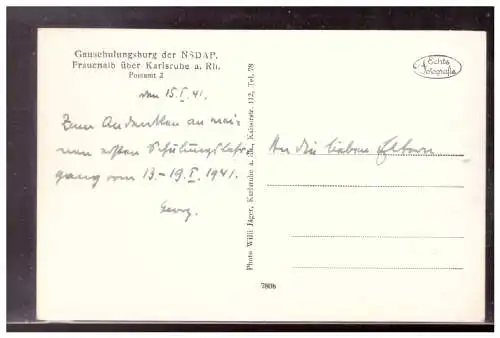 Gauschulungsburg der NSDAP.
Frauenalb über Karlsruhe a. Rh.
Postamt 2
den 15.I.41.
Zum Andenken an mei-
nen ersten Schulungslehr-
gang vom 13.-19.I.1941.
Georg.
Photo Willi Jäger, Karlsruhe a. Rh., Kaiserstr. 112, Tel. 78
7806
Echte
Fotografie
An die lieben Eltern